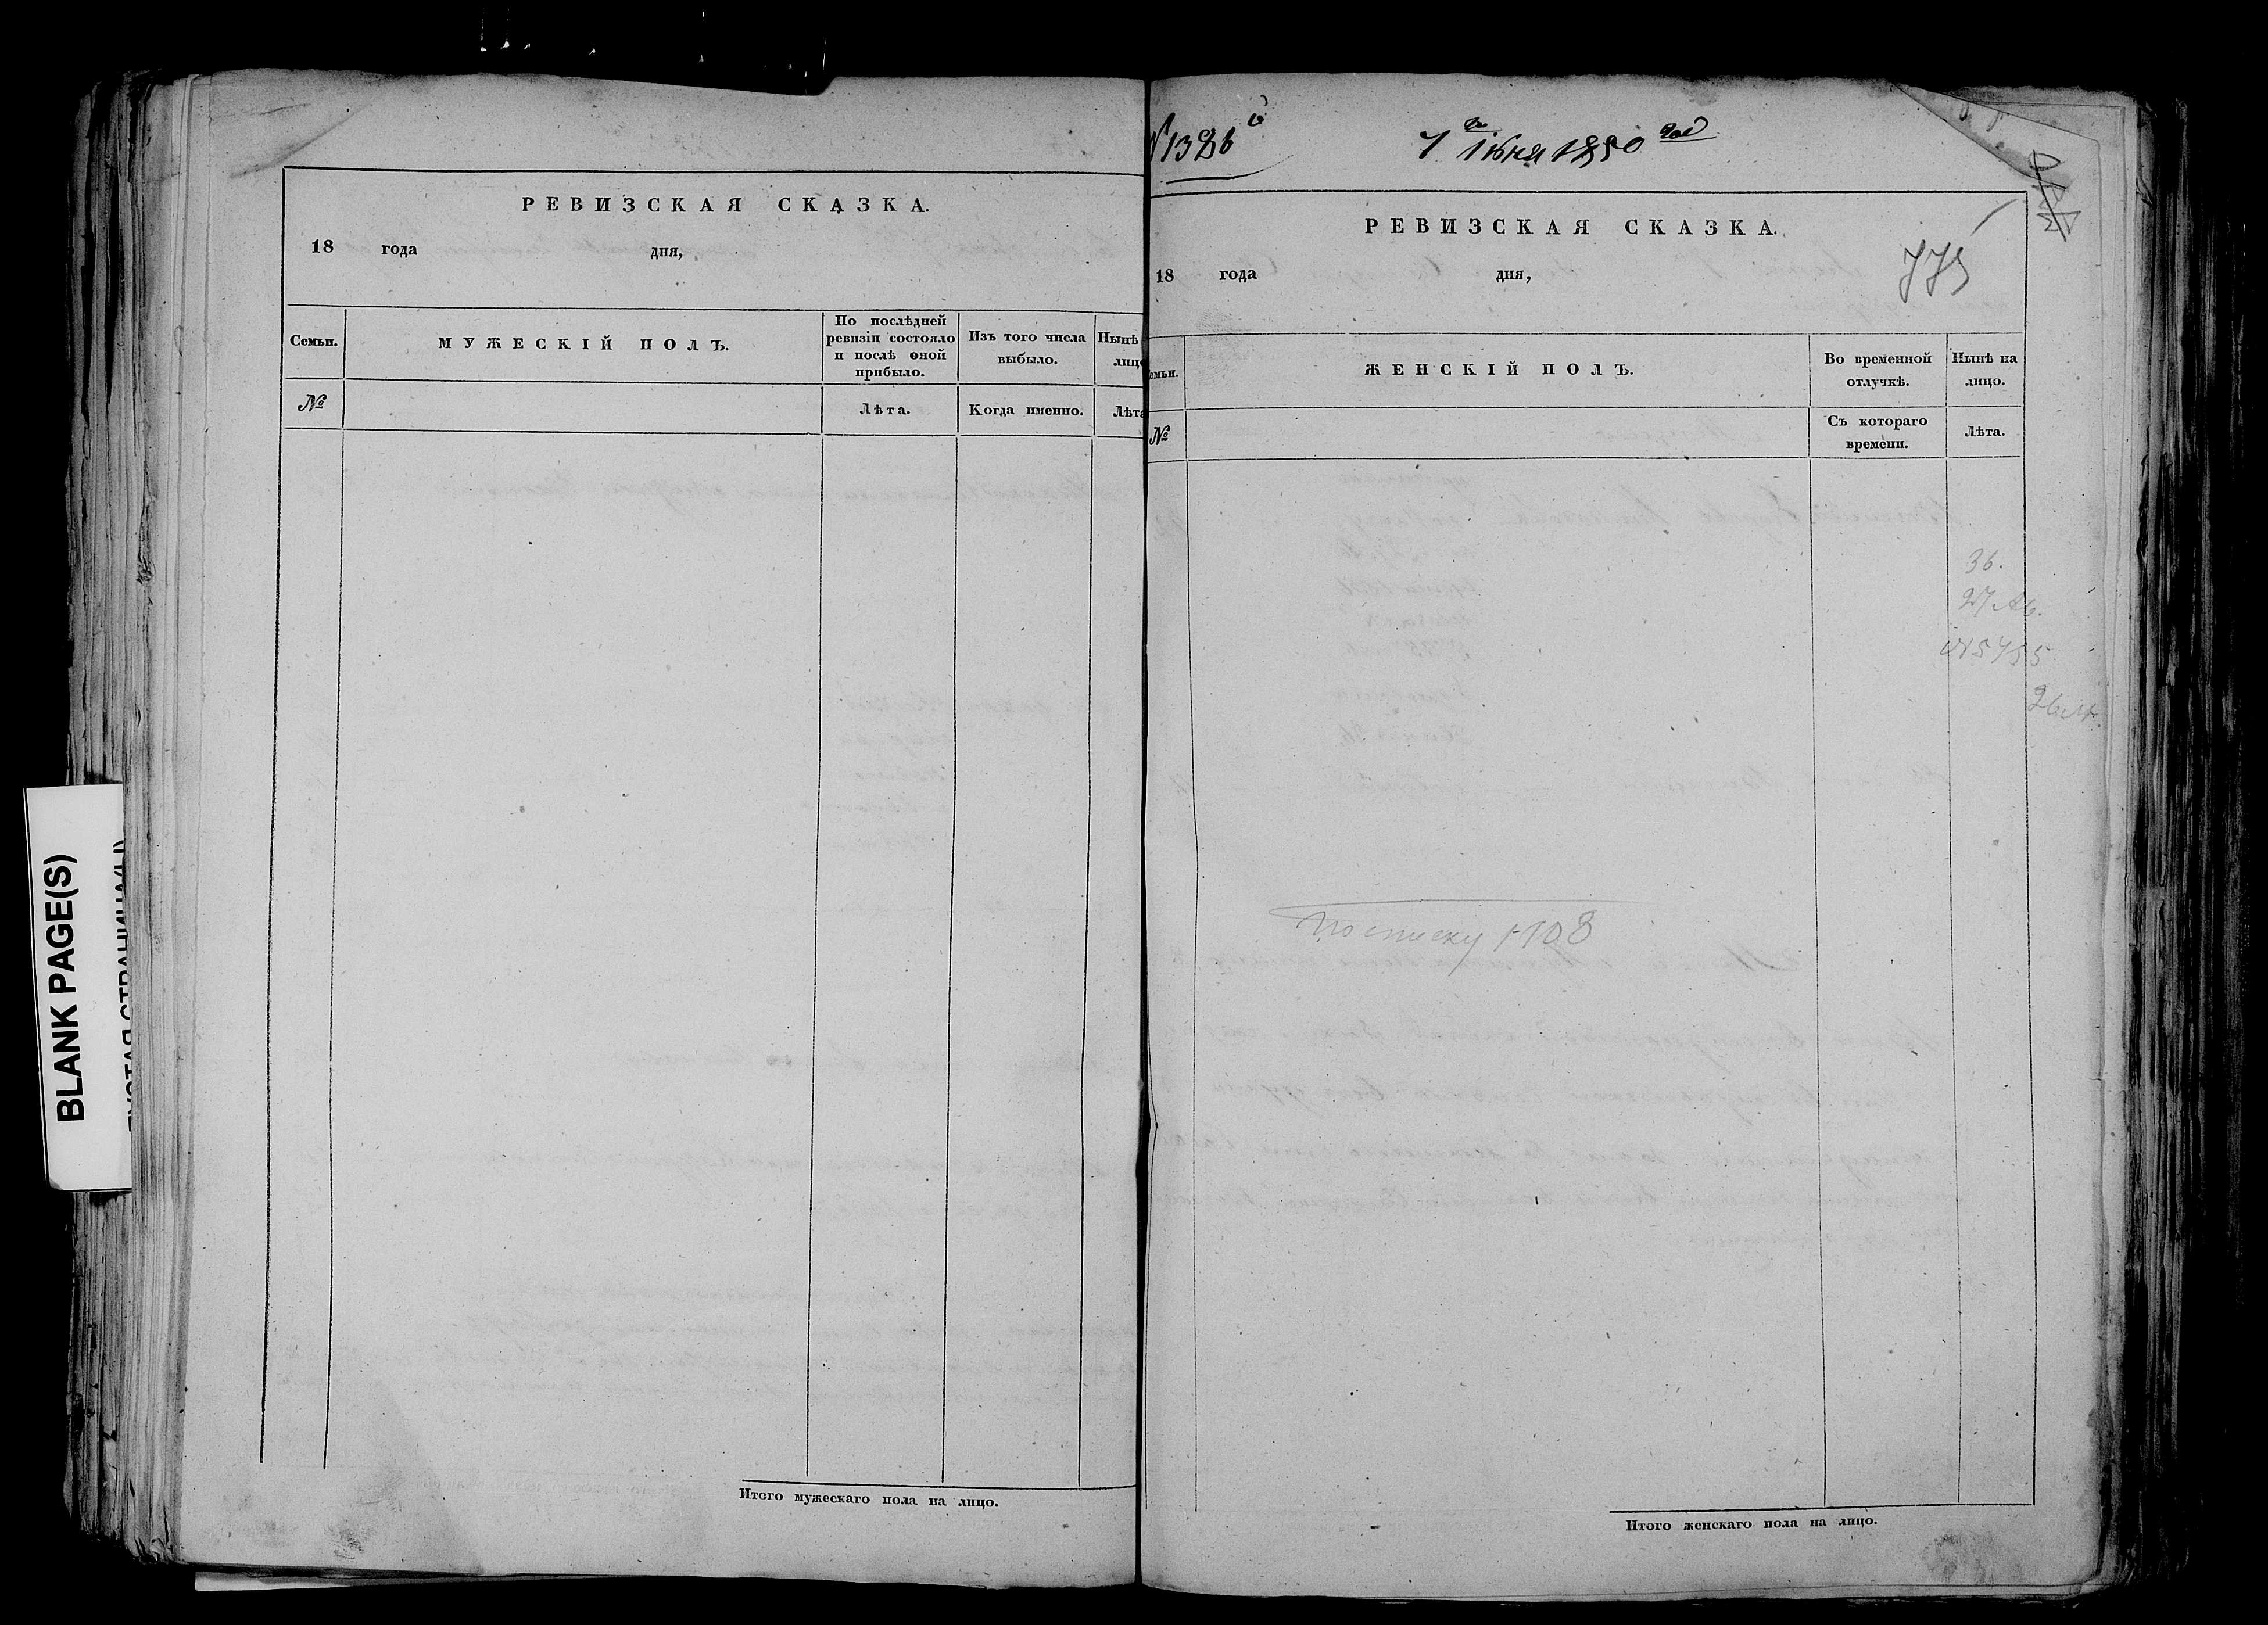 РЕВИЗСКАЯ СКАЗКА.
18 года дня,
Семьи.
МУЖЕСКІЙ ПОЛЪ.
По послѣдней ревизіи состояло и послѣ оной прибыло.
Изъ того числа выбыло.
Нынѣ
лицо
№
Лѣта.
Когда именно.
Лѣта
Итого мужескаго пола на лицо.
BLANK PAGE(S)
ПУСТАЯ СТРАНИЦА(Ы)
№1326й
7го Іюня 1850 года
РЕВИЗСКАЯ СКАЗКА.
775
18 года дня,
емьи.
ЖЕНСКІЙ ПОЛЪ.
Во временной отлучкѣ.
Нынѣ на лицо.
№
Съ котораго времени.
Лѣта.
36.
27 Ав.
№5755
по списку 1108
Итого женскаго пола на лицо.